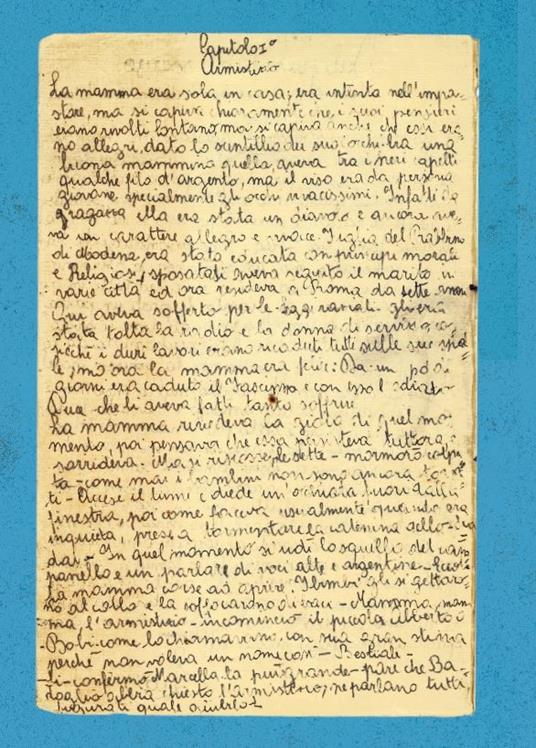 Capitolo I°
Armistizio
La mamma era sola in casa; era intenta nell'impa-
stare, ma si capiva chiaramente che i suoi pensieri
erano rivolti lontano, ma si capiva anche che essi era-
no allegri, dato lo scintillio dei suoi occhi. Era una
buona mammina quella, aveva tra i neri capelli
qualche filo d'argento, ma il viso era da persona
giovane specialmente gli occhi vivacissimi. Infatti da
ragazza ella era stata un diavolo e ancora ave-
va un carattere allegro e vivace. Figlia del Rabbino
di Modena, era stata educata con principi morali
e Religiosi; sposatasi aveva seguito il marito in
varie città ed ora risiedeva a Roma da sette anni
Qui aveva sofferto per le leggi razziali. gli era
stata tolta la radio e la donna di servizio co-
sicché i duri lavori erano ricaduti tutti sulle sue spal-
le; ma ora la mamma era felice: Da un po' di
giorni era caduto il Fascismo e con esso l'odiato
Duce che li aveva fatti tanto soffrire
La mamma rivedeva la gioia di quel mo-
mento, poi pensava che essa persisteva tuttora e
sorrideva. Ma si riscosse, le sette - mormorò
- come mai i bambini non sono ancora
ti - Accese il lume e diede un'occhiata fuori dalla
finestra, poi come faceva usualmente quando era
inquieta, prese a tormentare la catenina dello
dai - In quel momento si udì lo squillo del cam-
panello e un parlare di voci alte e argentine - Eccoli
La mamma corse ad aprire. I bimbi gli si gettaro-
no al collo e la soffocarono di baci - Mamma, mam-
ma, l'armistizio - incominciò il piccolo Alberto o
- Bobi come lo chiamavano con sua gran stizza
perché non voleva un nome così - Bestiale -
- Si - confermò Marcella la più grande - pare che Ba-
doglio abbia chiesto l'armistizio; ne parlano tutti,
figurati quale